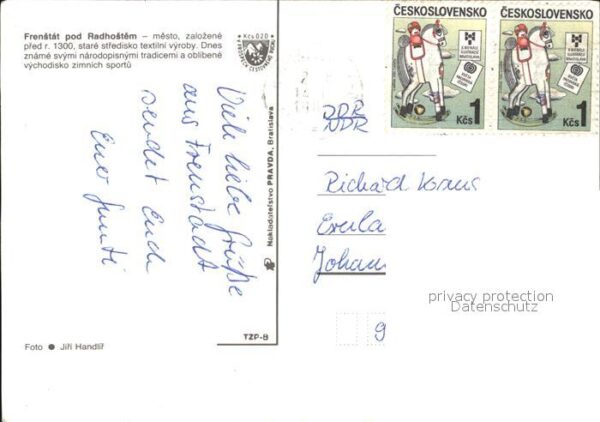 Frenštát pod Radhoštěm – město, založené
před r. 1300, staré středisko textilní výroby. Dnes
známé svými národopisnými tradicemi a oblíbené
východisko zimních sportů
Kčs 0,20
ČESKOSLOVENSKO
1 Kčs
ČESKOSLOVENSKO
1 Kčs
Viele liebe Grüße
aus Frenstadt
sendet Euch
Euer
Nakladateľstvo PRAVDA, Bratislava
DDR
DDR
Richard Kraus
Johan
9
privacy protection
Datenschutz
TZP-B
Foto ● Jiří Handlíř